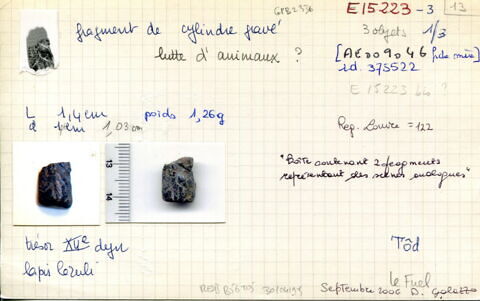 GPB2336
E15223-3 13
fragment de cylindre gravé
3 objets 1/3
lutte d'animaux ?
[AE009046
id. 375522
E 15223 bis ?
L 1,4 cm poids 1,26g
d 1 cm 1,03 cm
Reg. Louvre = 122
"Boîte contenant 2 fragments
représentant des scènes analogues"
13
14
trésor XIIe dyn
lapis lazuli
Tôd
Le Fuel
Septembre 2006 D.